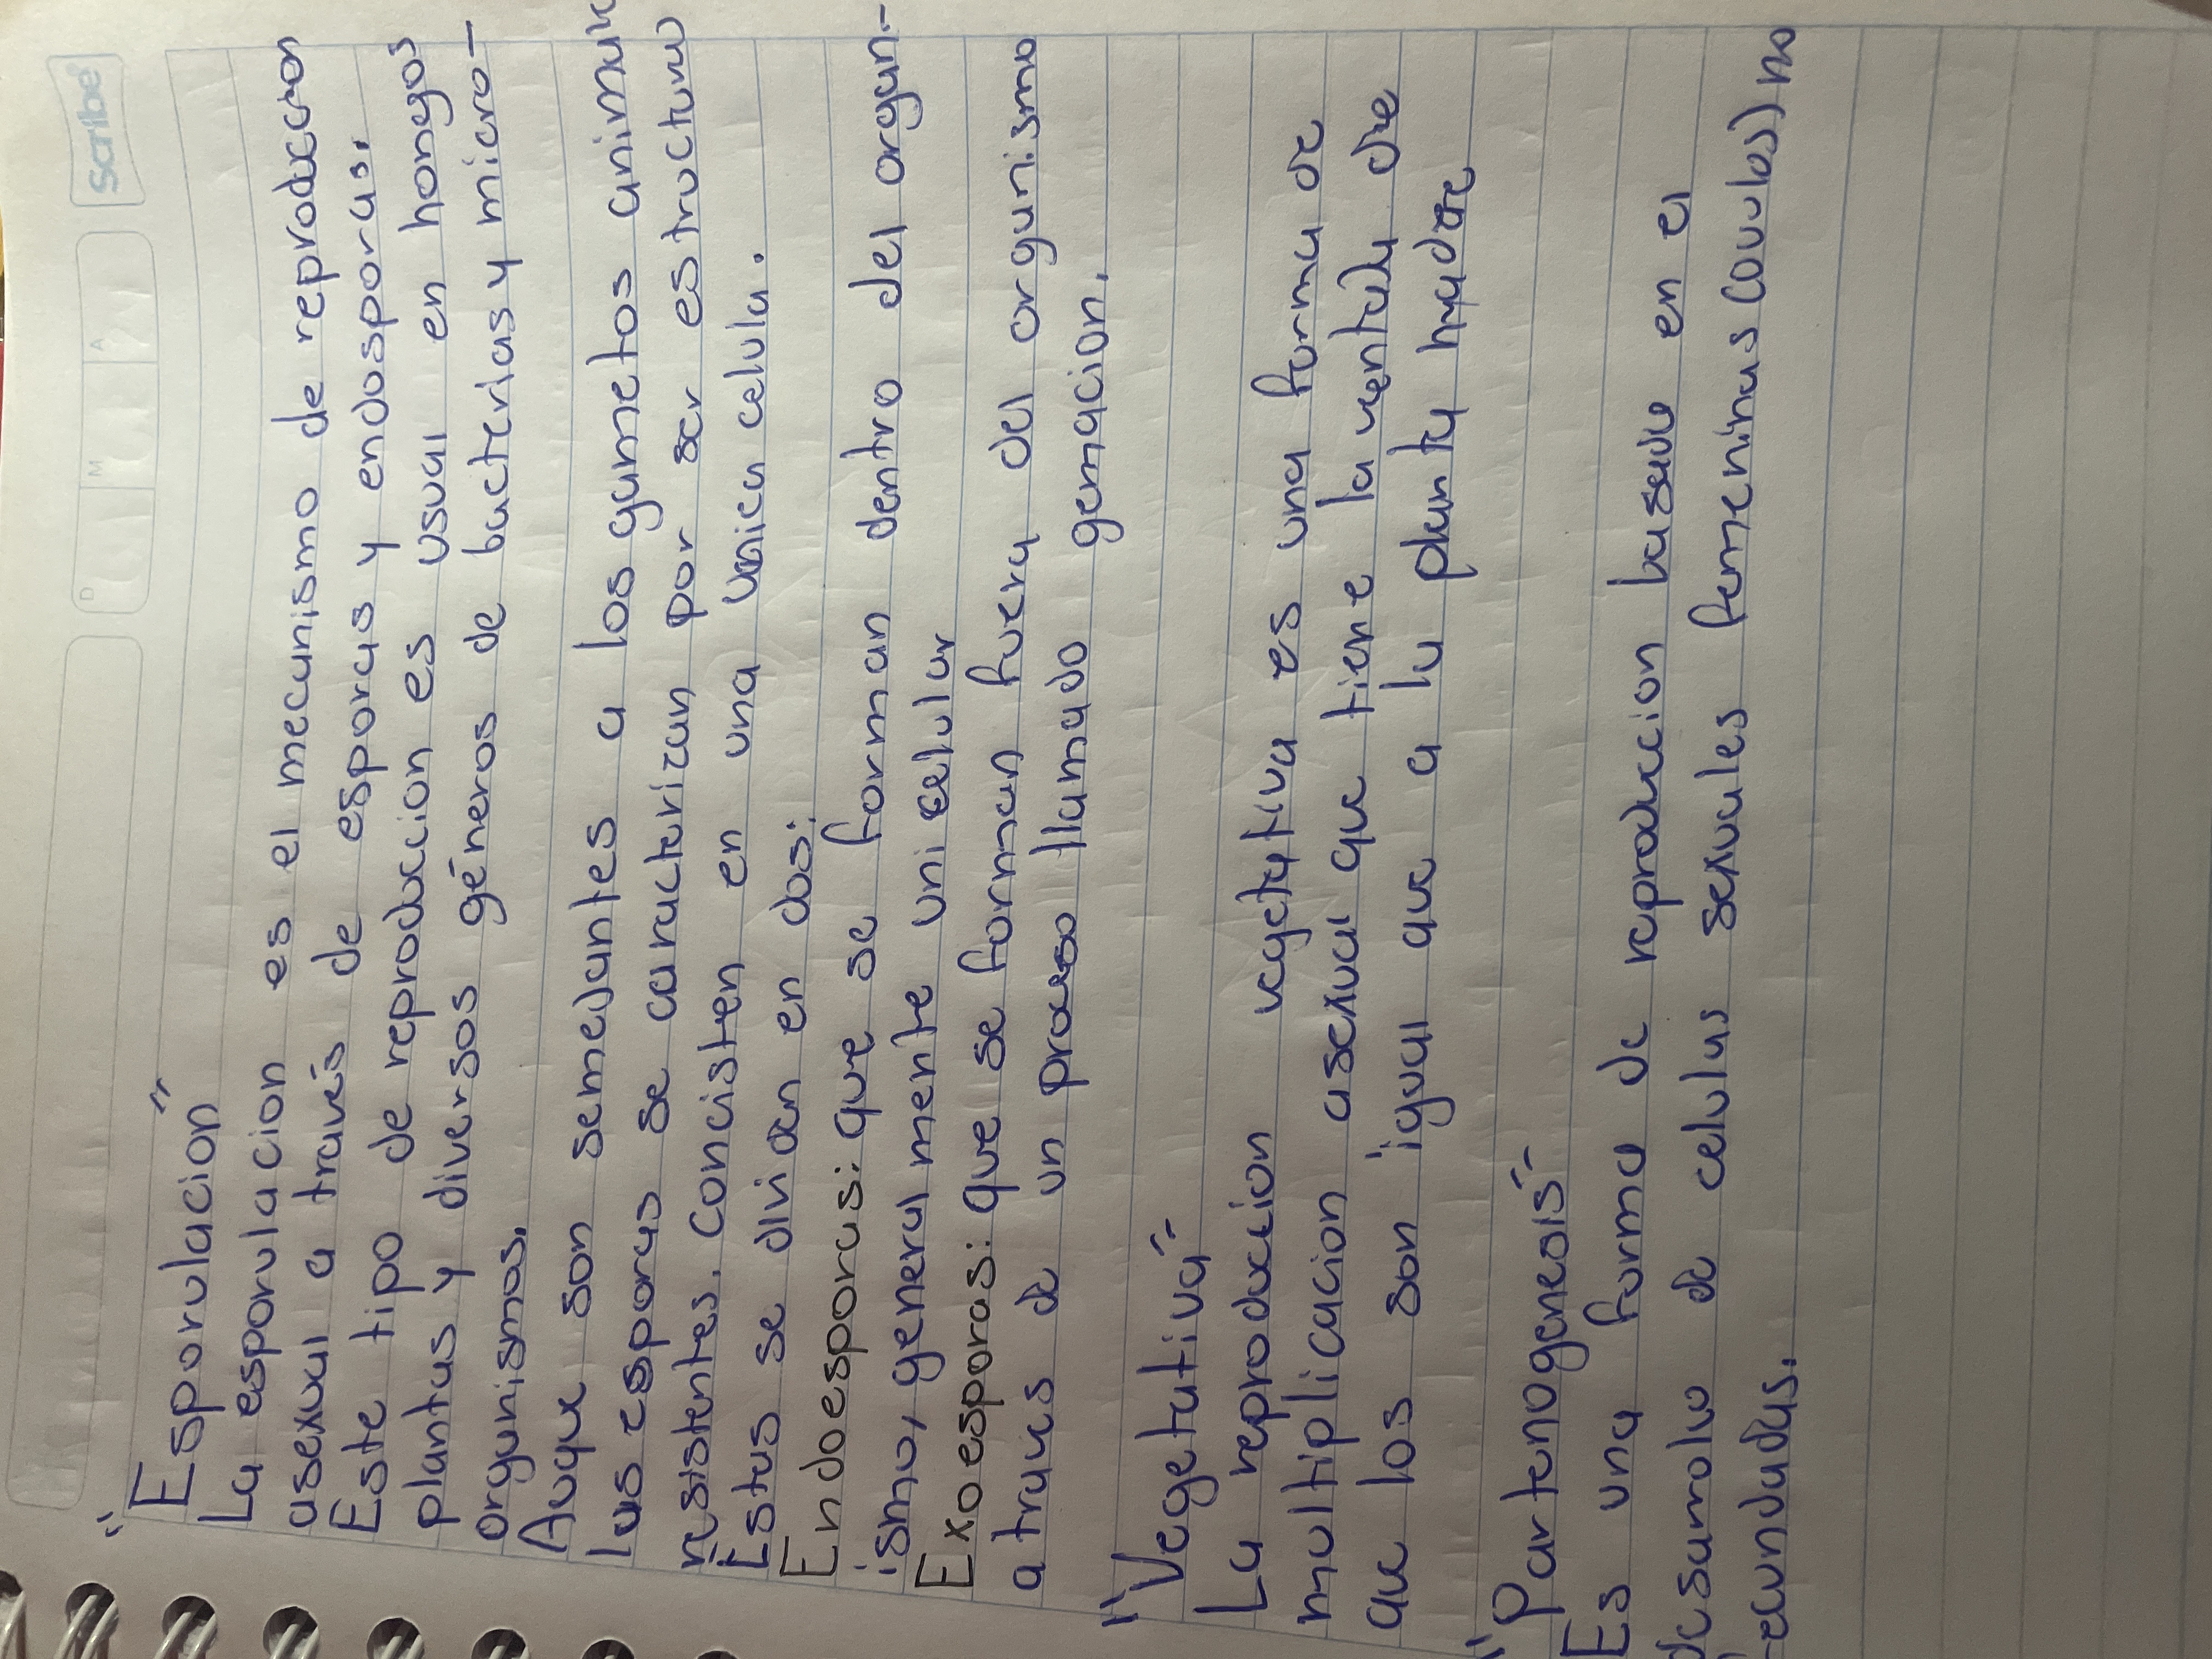 Scribe
D M A
"Esporulación"
La esporulacion es el mecanismo de reproduccion
asexual a través de esporas y endosporas.
Este tipo de reproduccion es usual en hongos
plantas y diversos géneros de bacterias y micro-
organismos.
Auque son semejantes a los gametos
las esporas se caracterizan por ser estructura
resistentes. Concisten en una unica celula.
Estas se dividen en dos:
Endoesporas: que se forman dentro del organ-
ismo, general mente uni celular
Exoesporas: que se forman fuera del organismo
atraves de un proceso llamado gemacion.
"Vegetativa"
La reproduccion vegetativa es una forma de
multiplicacion asexual que tiene la ventaja de
que los son igual que a la planta madre
"Partenogenesis"
Es una forma de reproduccion basado en el
desarrollo de celulas sexuales femeninas (ovulos) no
fecundadas.